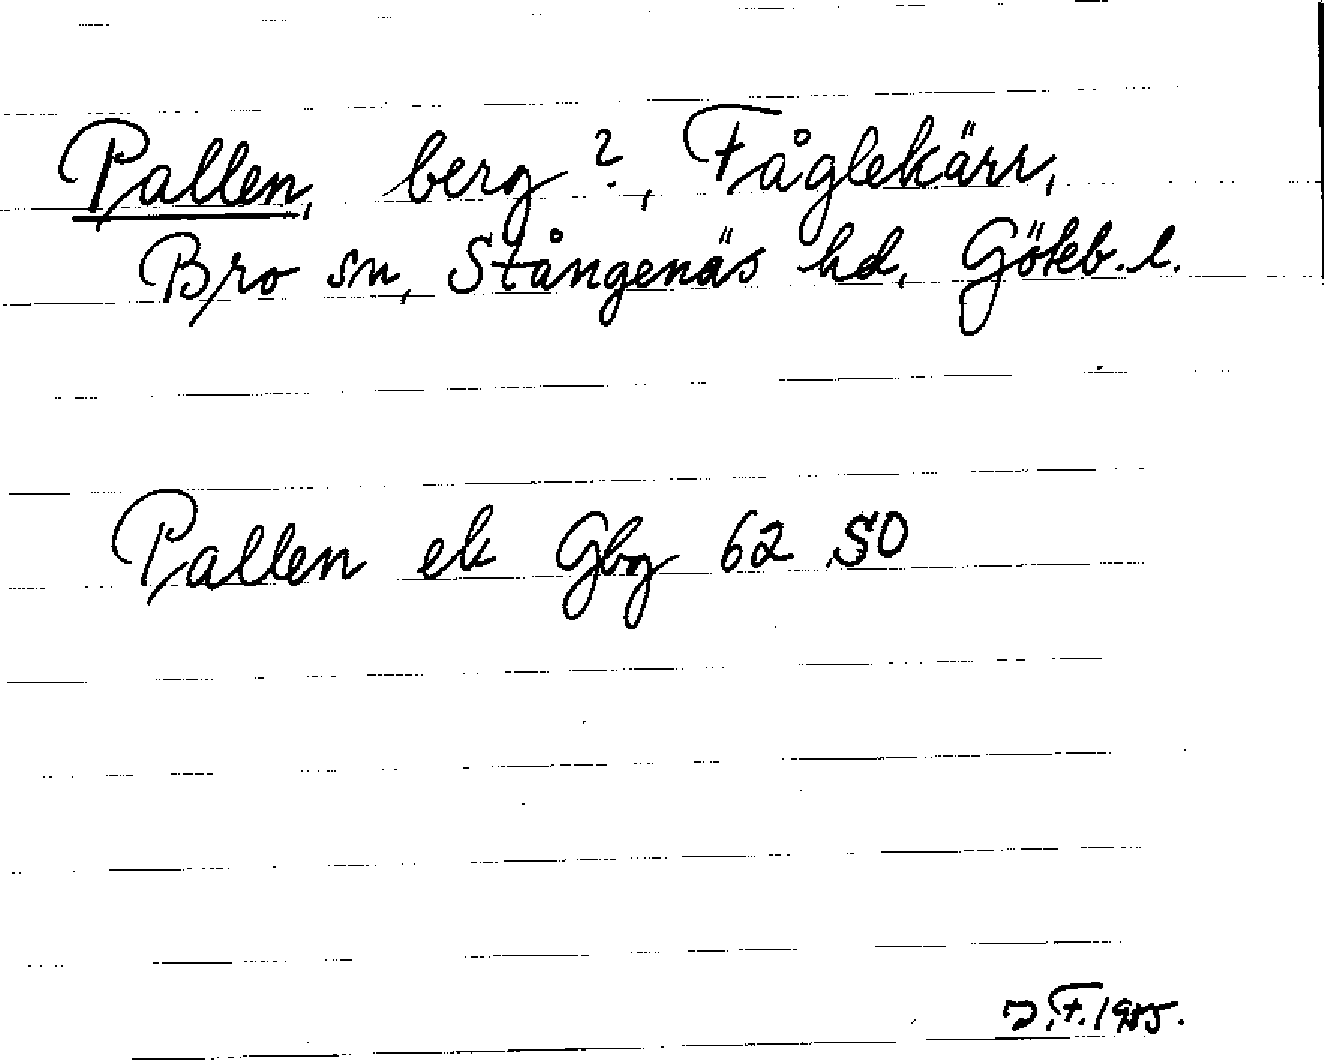 Pallen, berg?, Fåglekärr,
Bro sn, Stångenäs hd, Göteb. l.
Pallen ek Gbg 62 SO
F. 1985.